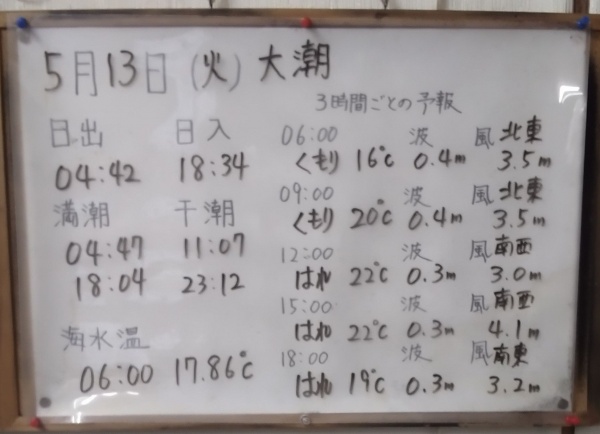 5月13日 (火) 大潮
3時間ごとの予報
日出 日入
04:42 18:34
満潮 干潮
04:47 11:07
18:04 23:12
海水温
06:00 17.86℃
06:00 波 風 北東
くもり 16℃ 0.4m 3.5m
09:00 波 風 北東
くもり 20℃ 0.4m 3.5m
12:00 波 風 南西
はれ 22℃ 0.3m 3.0m
15:00 波 風 南西
はれ 22℃ 0.3m 4.1m
18:00 波 風 南東
はれ 19℃ 0.3m 3.2m